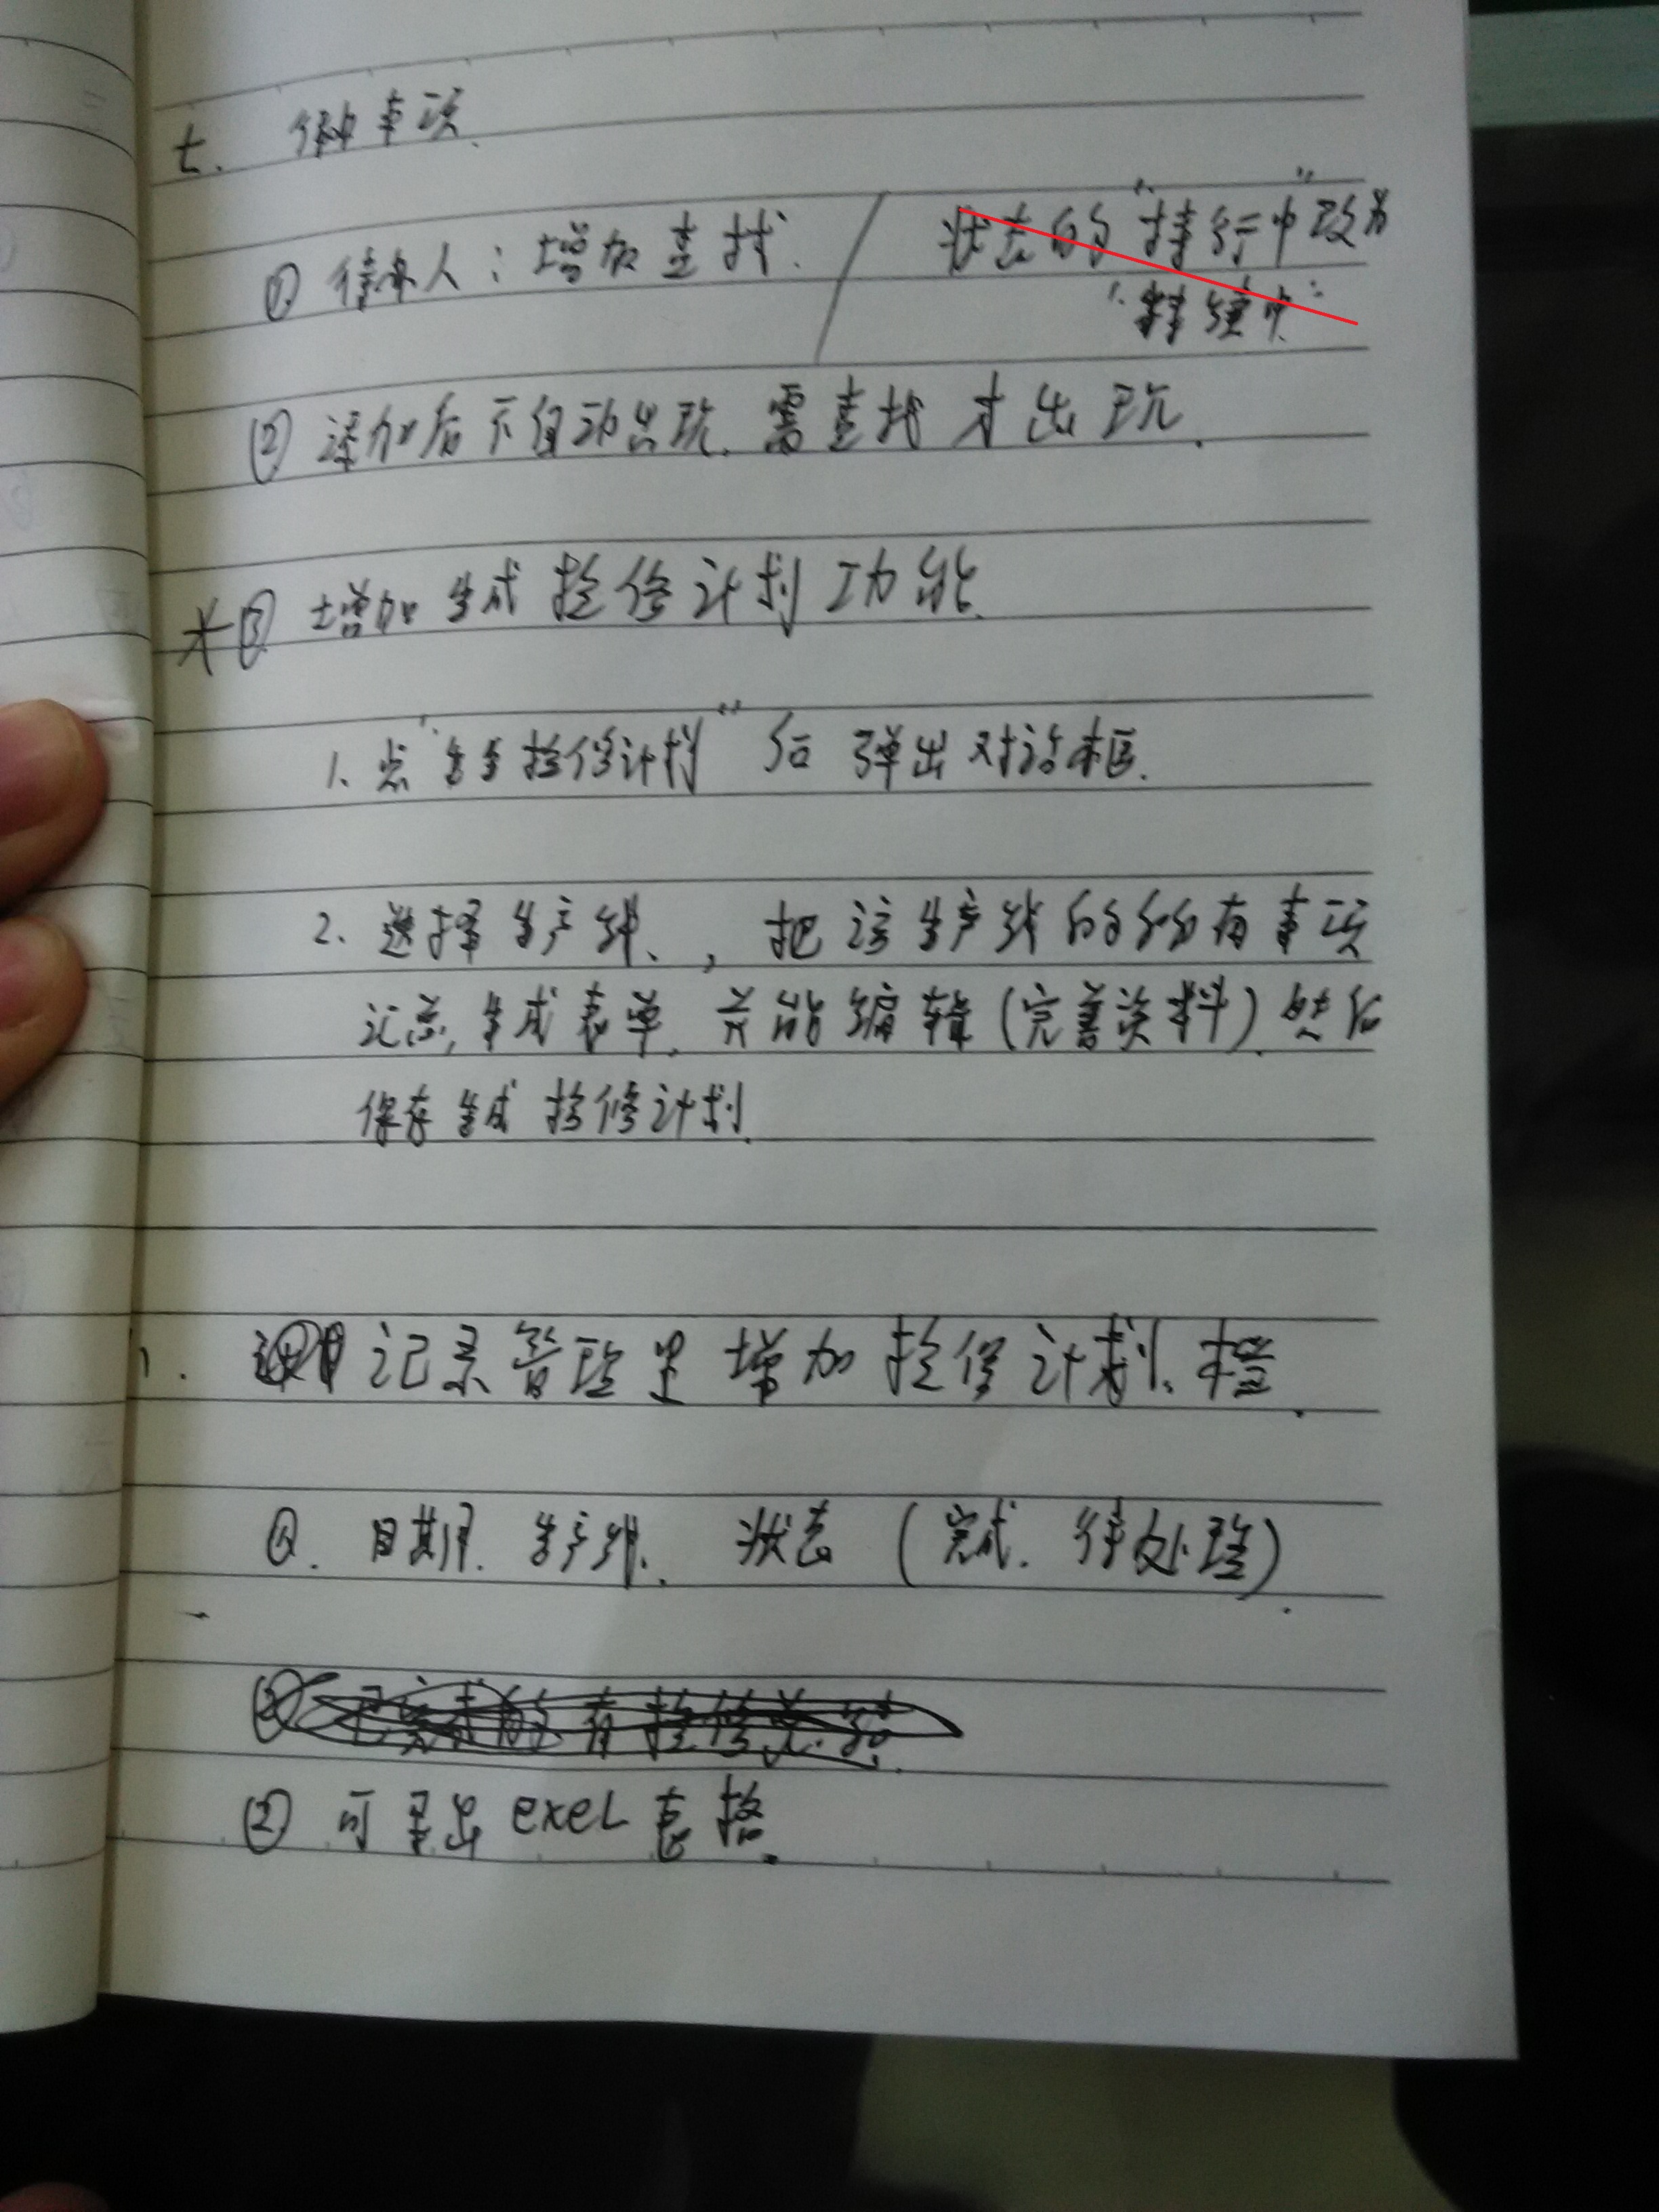 七. 待办事项.
① 待办人：增加查找. / 状态的"持行中"改为
"持续中"
② 添加后不自动出现. 需查找才出现.
③ 增加生成检修计划功能.
1. 点"生成检修计划"后弹出对话框.
2. 选择生产线、, 把该生产线的所有事项
汇总, 生成表单, 并能编辑(完善资料). 然后
保存生成检修计划.
记录管理里增加检修计划. 栏.
①. 日期. 生产线、 状态 (完成. 待处理).
② 可导出exel表格.